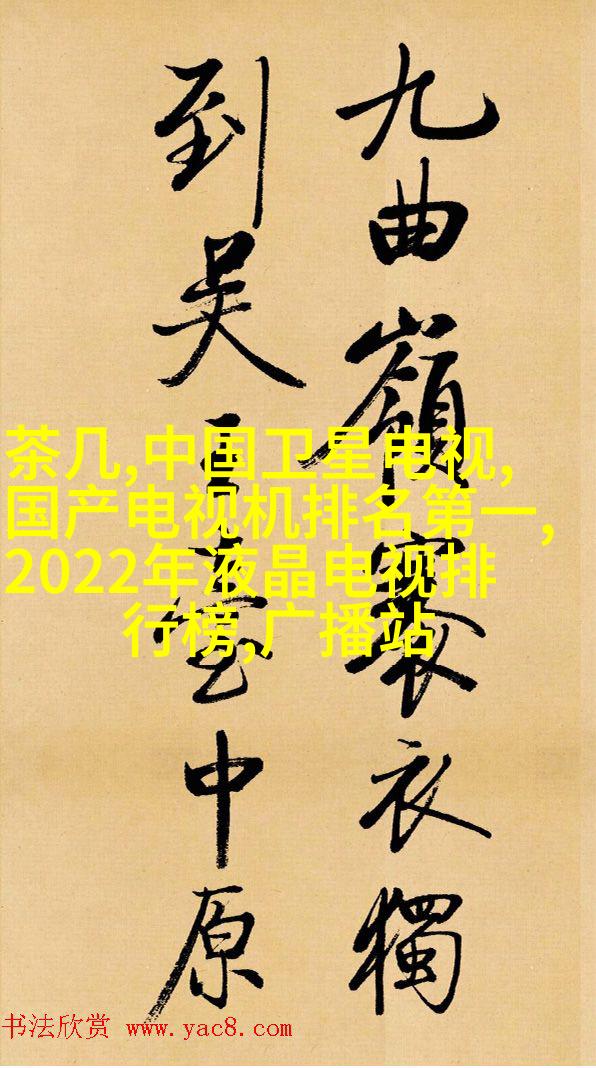 九曲嶺褰衣獨
到吴王臺中原
茶几,中国卫星电视,
国产电视机排名第一,
2022年液晶电视排
行榜,广播站
书法欣赏 www.yac8.com